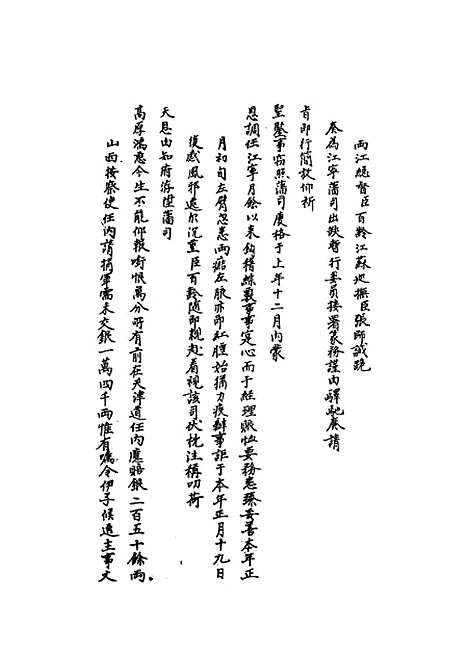 兩江總督臣百齡江蘇巡撫臣張師誠跪
奏為江寧藩司出缺暫行委員接署篆務謹由驛馳奏請
旨即行簡放仰祈
聖鑒事竊照藩司慶格于上年十二月內蒙
恩調任江寧月餘以來鈎稽綜覈事事定心而于經理賑恤要務悉臻妥善本年正
月初旬左臂忽患兩癤左腋亦即紅腫始猶力疾辦事詎于本年正月十九日
復感風邪遽尔沉重臣百齡隨即親赴看視該司伏枕注稱叨荷
天恩由知府洊陞藩司
高厚鴻慈今生不能仰報啣恨萬分所有前在天津道任內應賠銀二百五十餘兩
山西按察使任內請捐軍需未交銀一萬四千兩惟有囑令伊子候選主事文